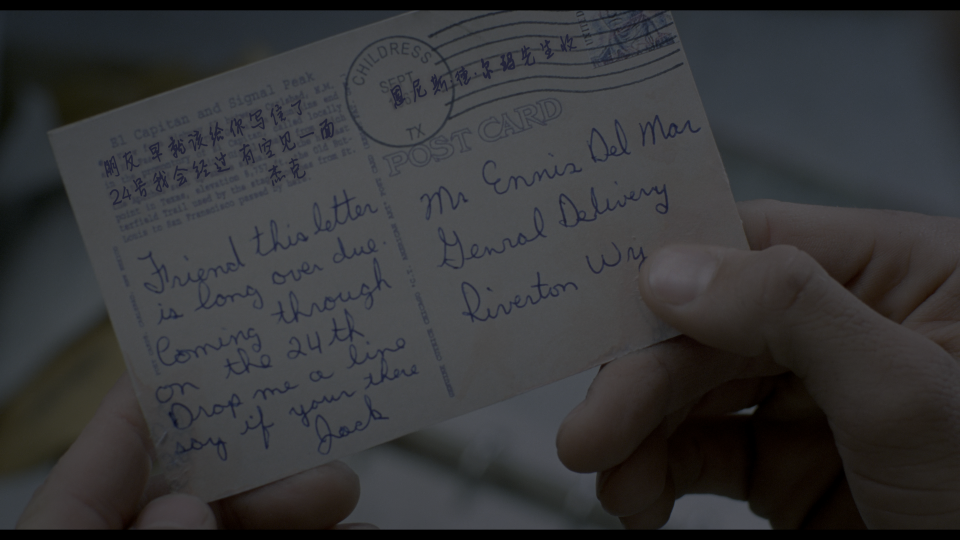 El Capitan and Signal Peak
朋友 早就该给你写信了
24号我会经过 有空见一面
杰克
Friend this letter
is long over due.
Coming through
on the 24th
Drop me a line
say if your there
Jack
CHILDRESS
SEPT
TX
恩尼斯·德·尔玛先生收
POST CARD
Mr Ennis Del Mar
Genral Delivery
Riverton Wy